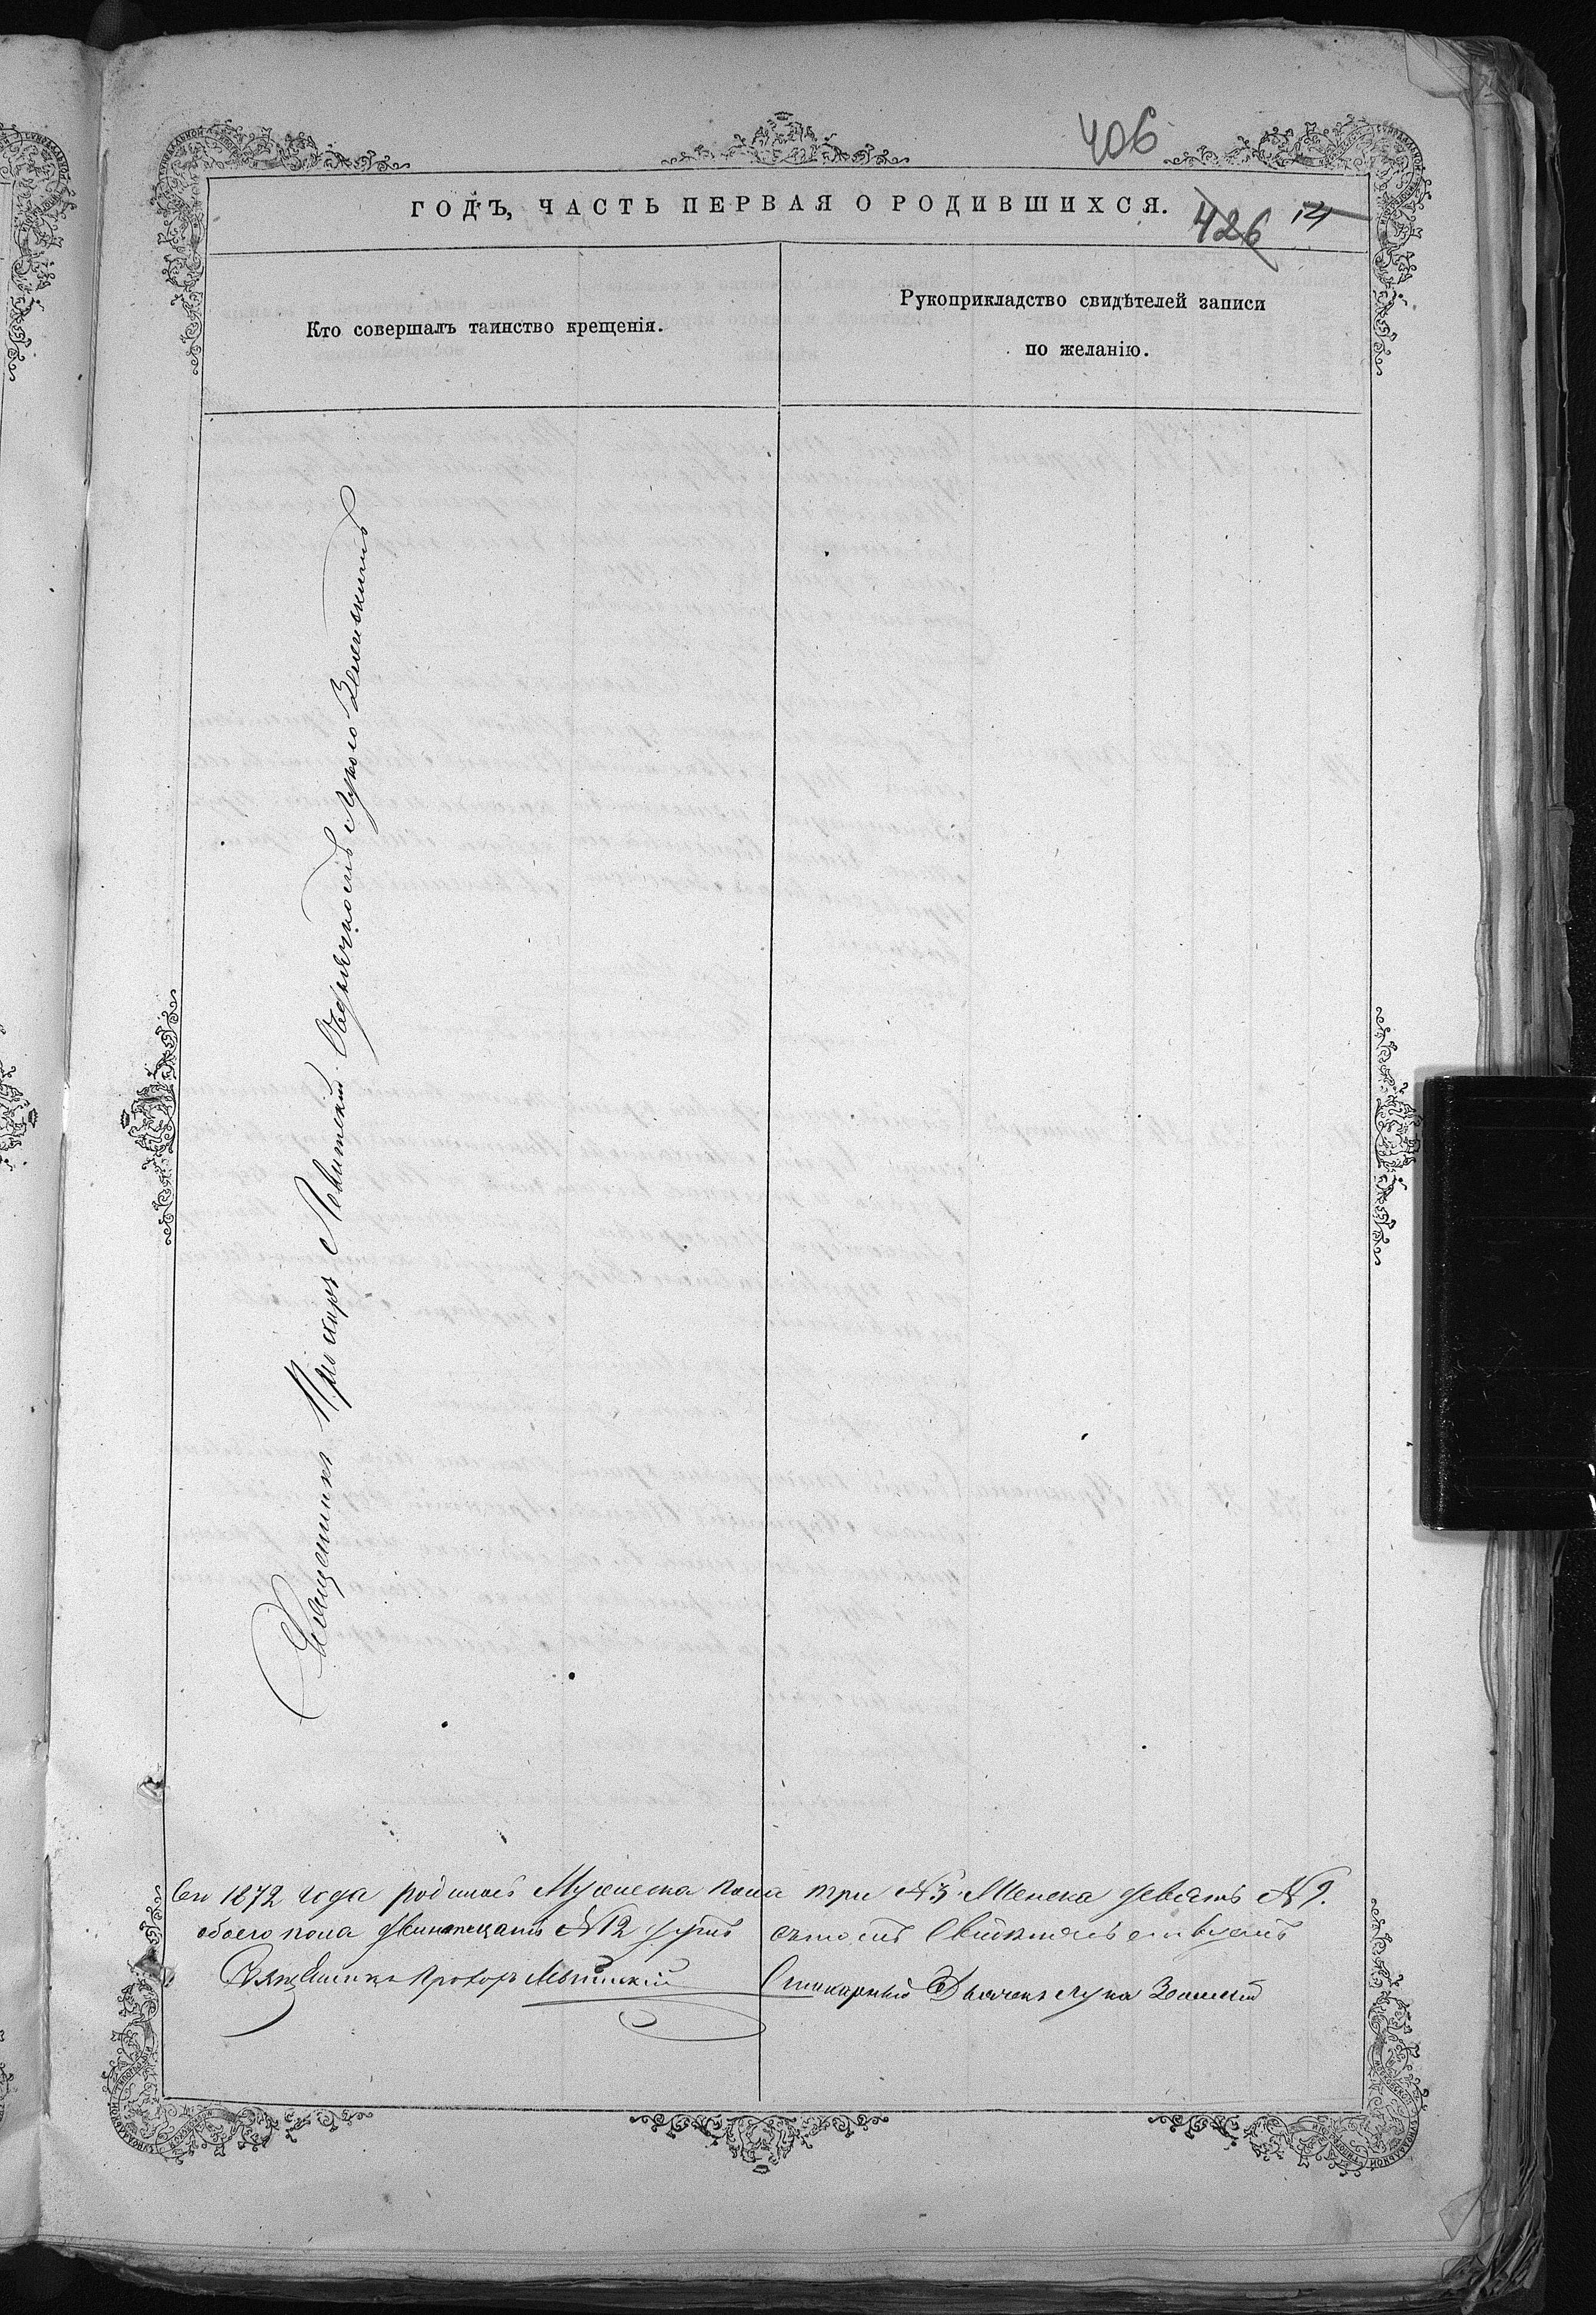 406
ГОДЪ, ЧАСТЬ ПЕРВАЯ О РОДИВШИХСЯ.
426 14
Кто совершалъ таинство крещенія.
Рукоприкладство свидѣтелей записи
по желанію.
Священникъ Прохоръ Левитскій
Лукою Зеленскимъ
1872 года родилось Мужеска пола три №3 Женска девять №9.
обоего пола двѣнатцать №12 въ томъ Свидѣтельствуемъ
Священникъ Прохоръ Левитскій Дьячекъ Лука Зеленскій